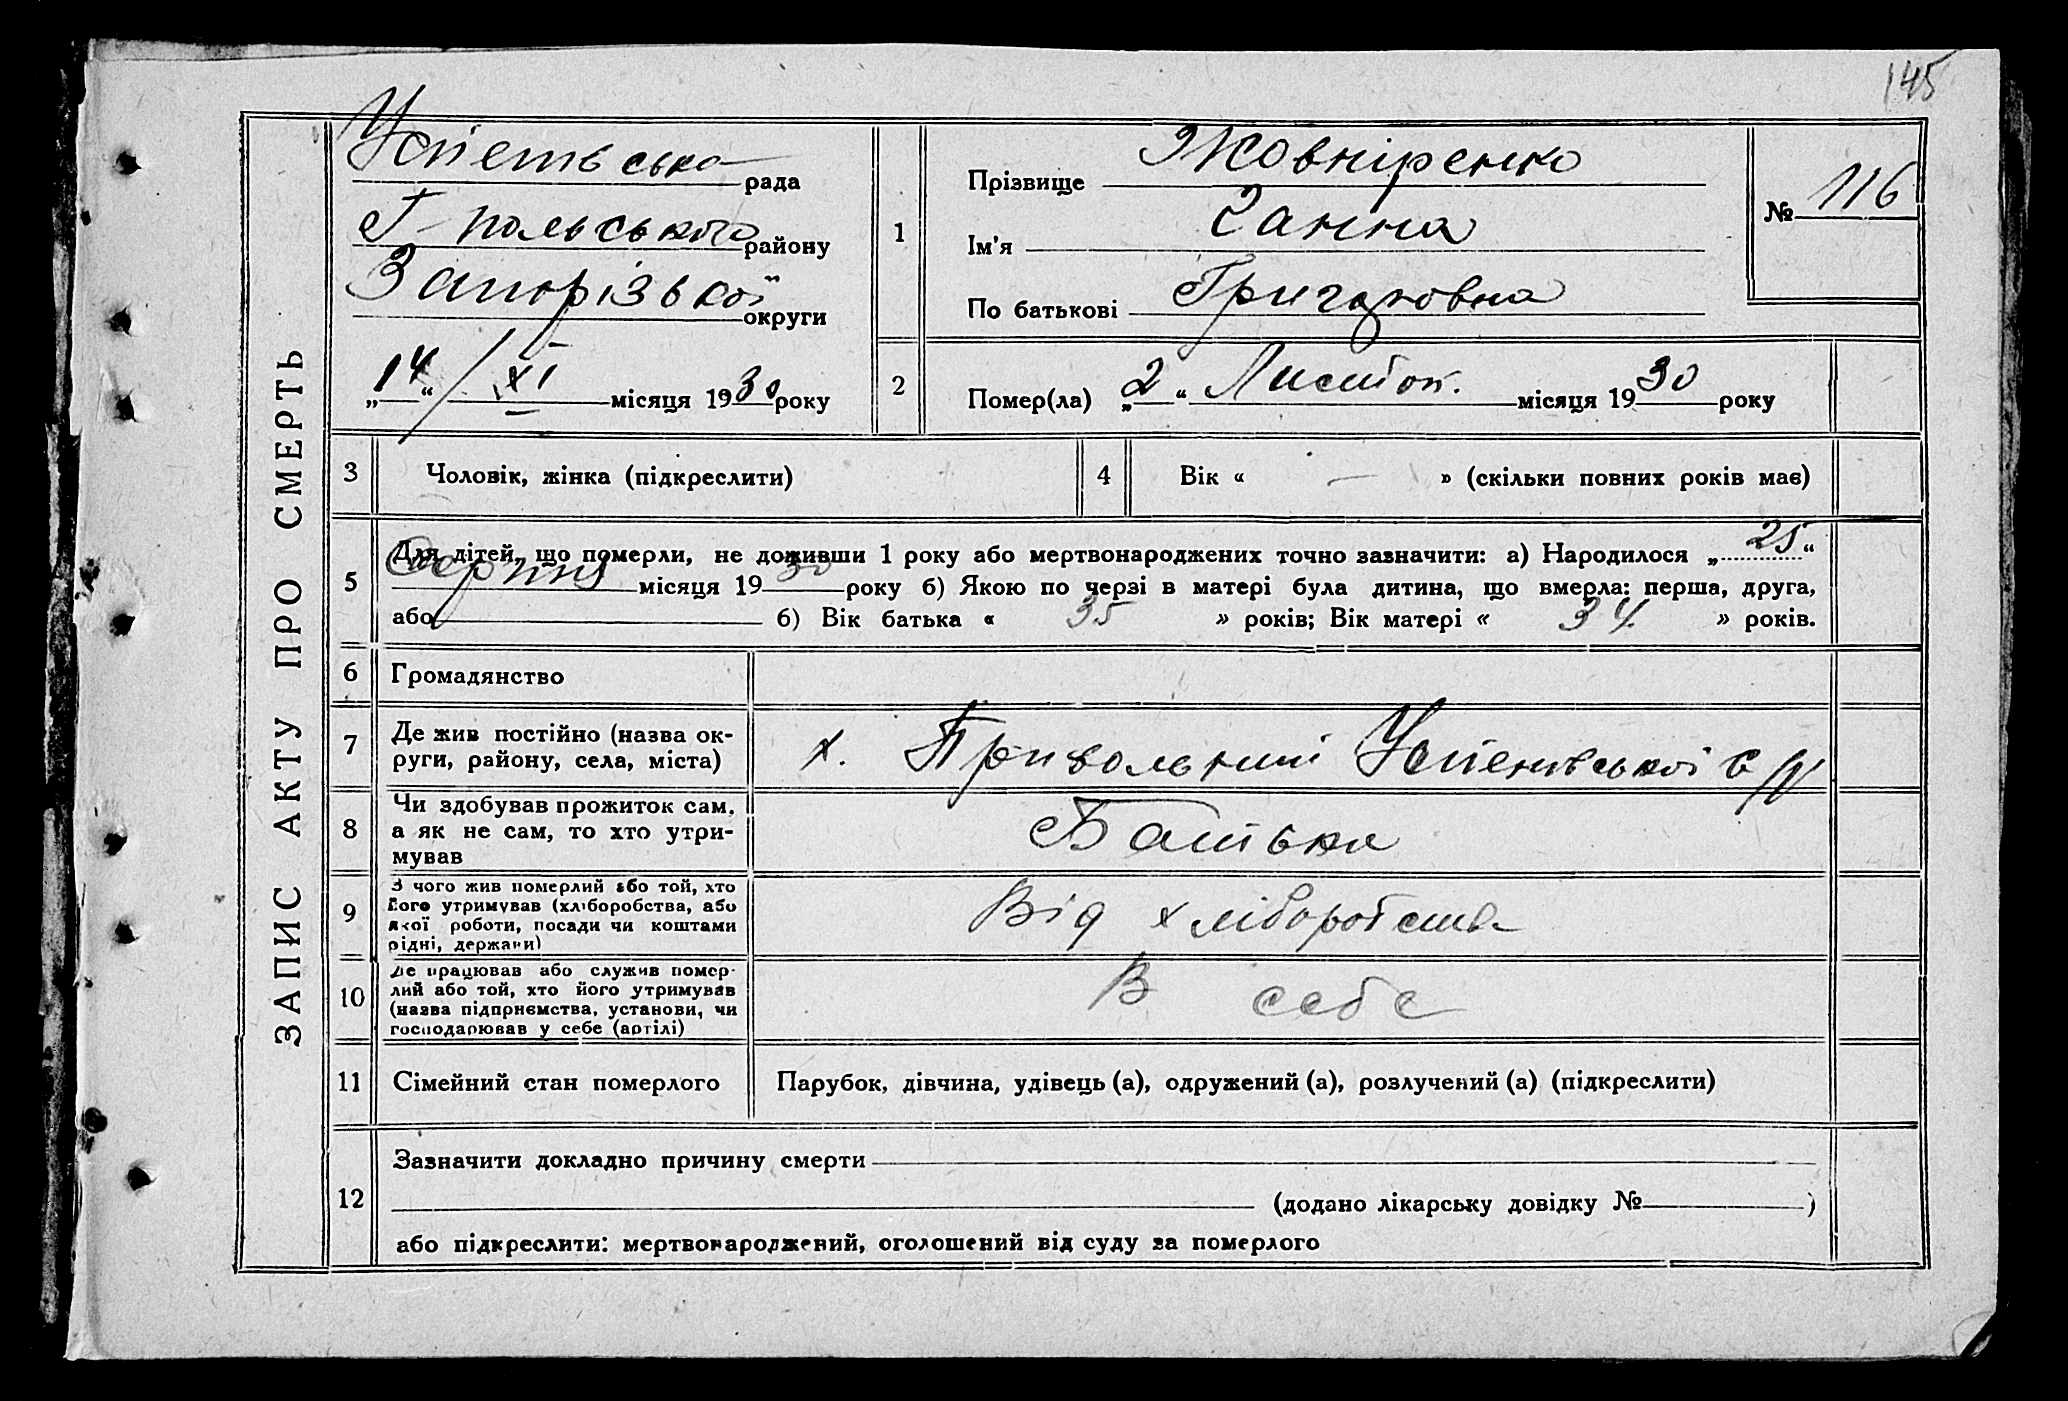 145
ЗАПИС АКТУ ПРО СМЕРТЬ
Успенівська рада
Г-польського району
Запорізької округи
„14“ / XI місяця 1930 року
1
Прізвище Жовніренко
Ім'я Ганна
По батькові Григоровна
№ 116
2
Помер(ла) „2“ Листоп. місяця 1930 року
3
Чоловік, жінка (підкреслити)
4
Вік « — » (скільки повних років має)
5
Для дітей, що померли, не доживши 1 року або мертвонароджених точно зазначити: а) Народилося „25“
Серпня місяця 1930 року б) Якою по черзі в матері була дитина, що вмерла: перша, друга,
або б) Вік батька « 35 » років; Вік матері « 34 » років.
6
Громадянство
7
Де жив постійно (назва ок-
руги, району, села, міста)
х. Привольний Успенівської с/р
8
Чи здобував прожиток сам,
а як не сам, то хто утри-
мував
Батьки
9
З чого жив померлий або той, хто
його утримував (хліборобства, або
якої роботи, посади чи коштами
рідні, держави)
Від хліборобства
10
Де працював або служив помер-
лий або той, хто його утримував
(назва підприємства, установи, чи
господарював у себе (артілі)
В себе
11
Сімейний стан померлого
Парубок, дівчина, удівець (а), одружений (а), розлучений (а) (підкреслити)
12
Зазначити докладно причину смерти
(додано лікарську довідку № )
або підкреслити: мертвонароджений, оголошений від суду за померлого